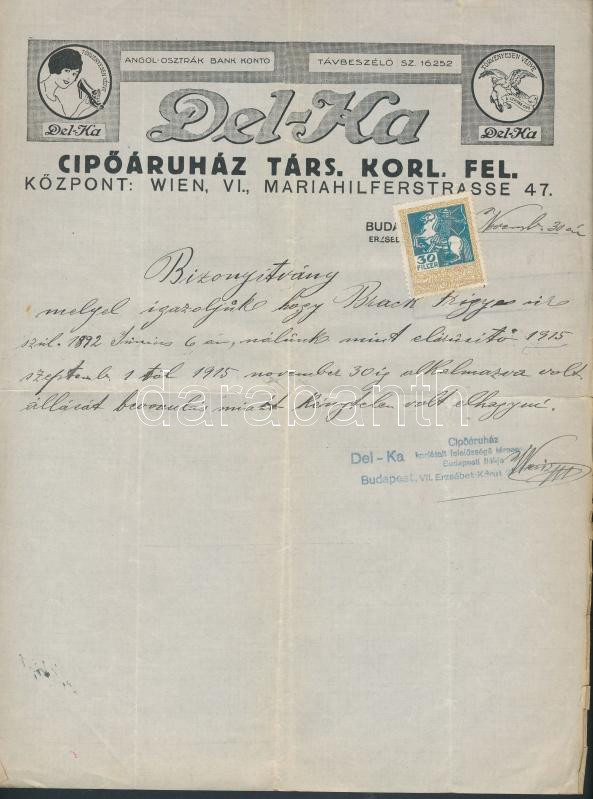 ANGOL-OSZTRÁK BANK KONTO
TÁVBESZÉLŐ SZ. 16252
TÖRVÉNYESEN VÉDVE
Del-Ka
TÖRVÉNYESEN VÉDVE
Del-Ka
Del-Ka
CIPŐÁRUHÁZ TÁRS. KORL. FEL.
KÖZPONT: WIEN, VI., MARIAHILFERSTRASSE 47.
BUDA
ERZSÉB
Novemb. 30 án
30
FILLÉR
Bizonyitvány
melyel igazoljuk hogy Brack úr
szül. 1892 Június 6 án, nálunk mint elárusitó 1915
szeptemb 1 től 1915 november 30 ig alkalmazva volt
állását bevonulás miatt kénytelen volt elhagyni.
darabanth
Cipőáruház
Del-Ka korlátolt felelősségű
Budapesti fiókja
Budapest, VII. Erzsébet-Körút